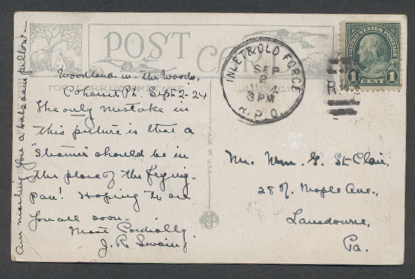 POST CARD
INLET & OLD FORGE
SEP
2
3PM
R.P.O.
UNITED STATES POSTAGE
1 CENT 1
R
Woodland-in-the-Woods,
Sept 2-24
The only mistake in
this picture is that a
"steamer" should be in
the place of the frying
pan! Hoping to see
you all soon.
Most Cordially,
J. R. Swain
Am making you a balsam pillow
Mr. Wm. G. St. Clair,
25 N. Maple Ave.,
Lansdowne,
Pa.